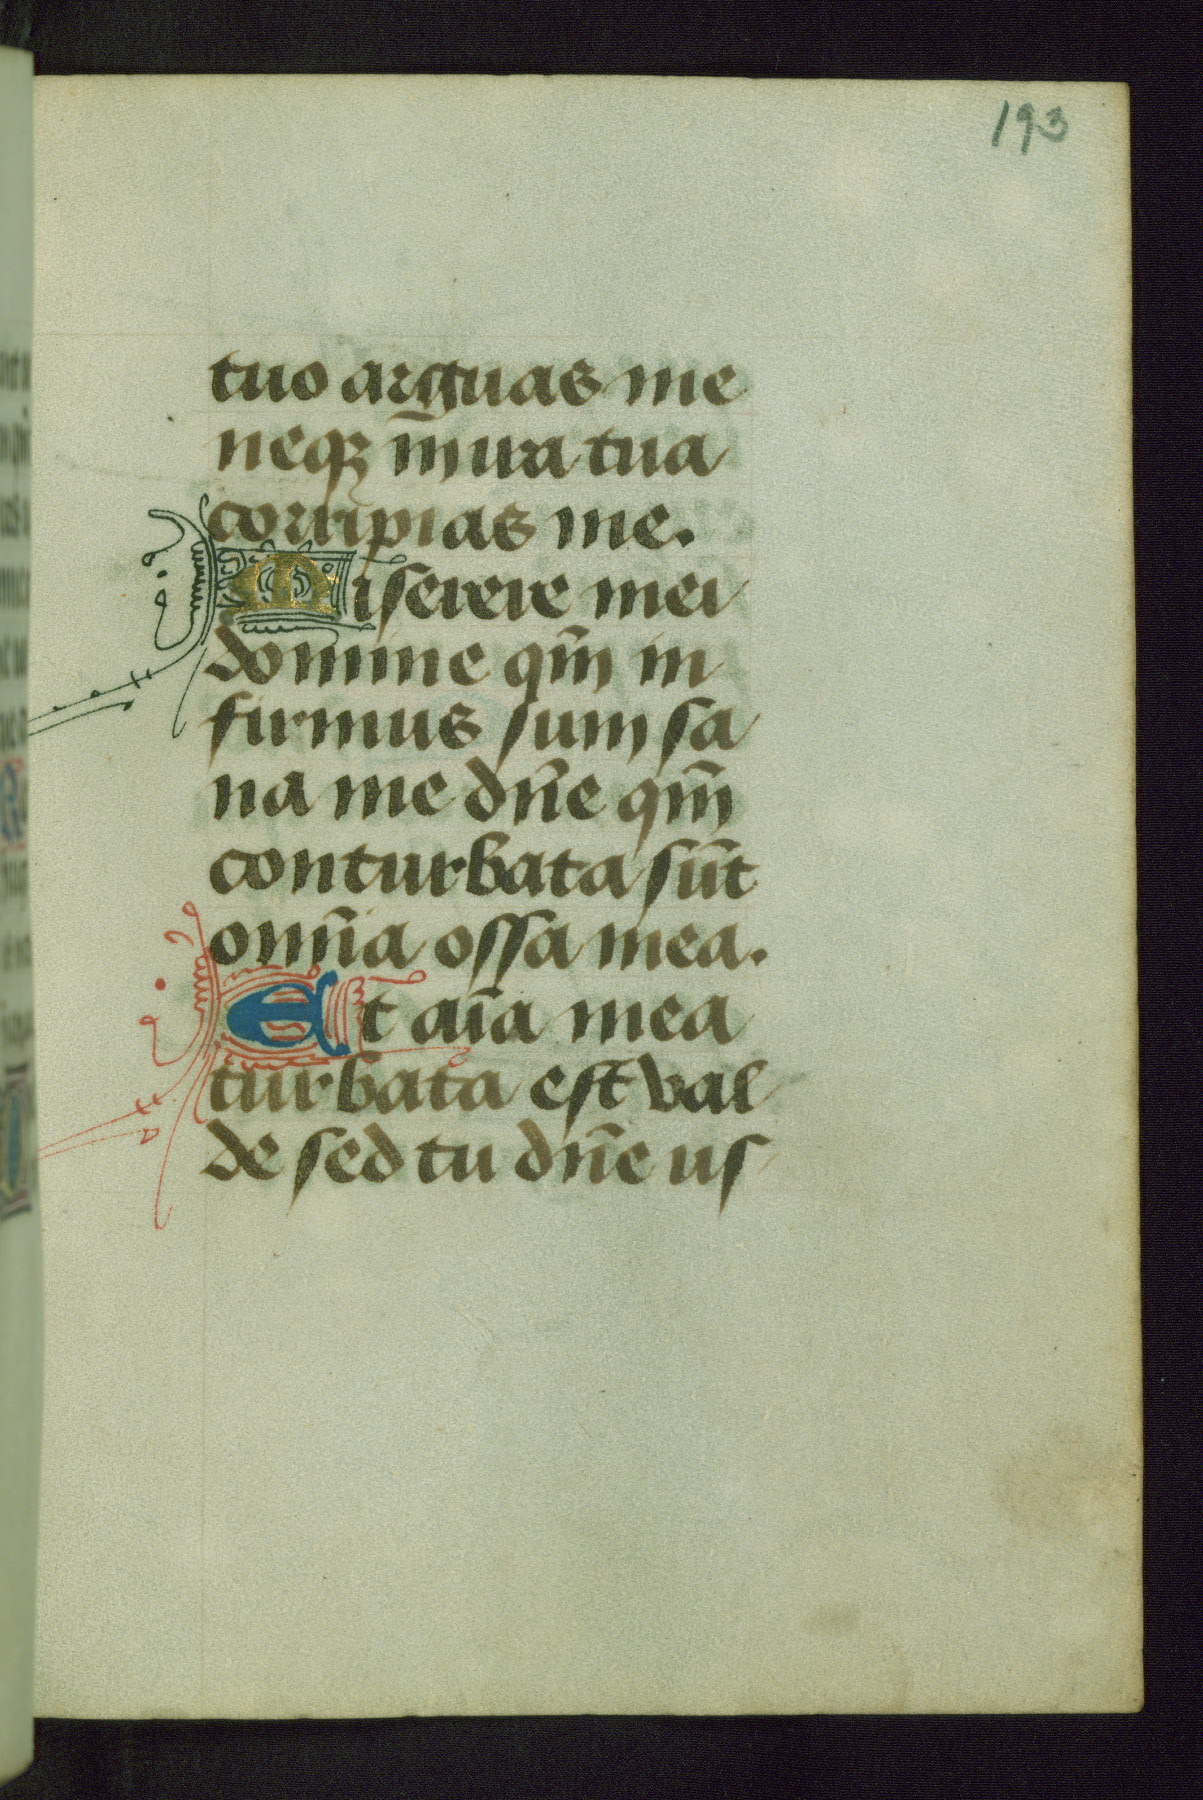 193
tuo arguas me
neqꝫ m̄ ura tua
corripias me.
Miserere mei
domine qm̄ in
firmus sum sa
na me dn̄e qm̄
conturbata sūt
omīa ossa mea.
Et aīa mea
turbata est val
de sed tu dn̄e us